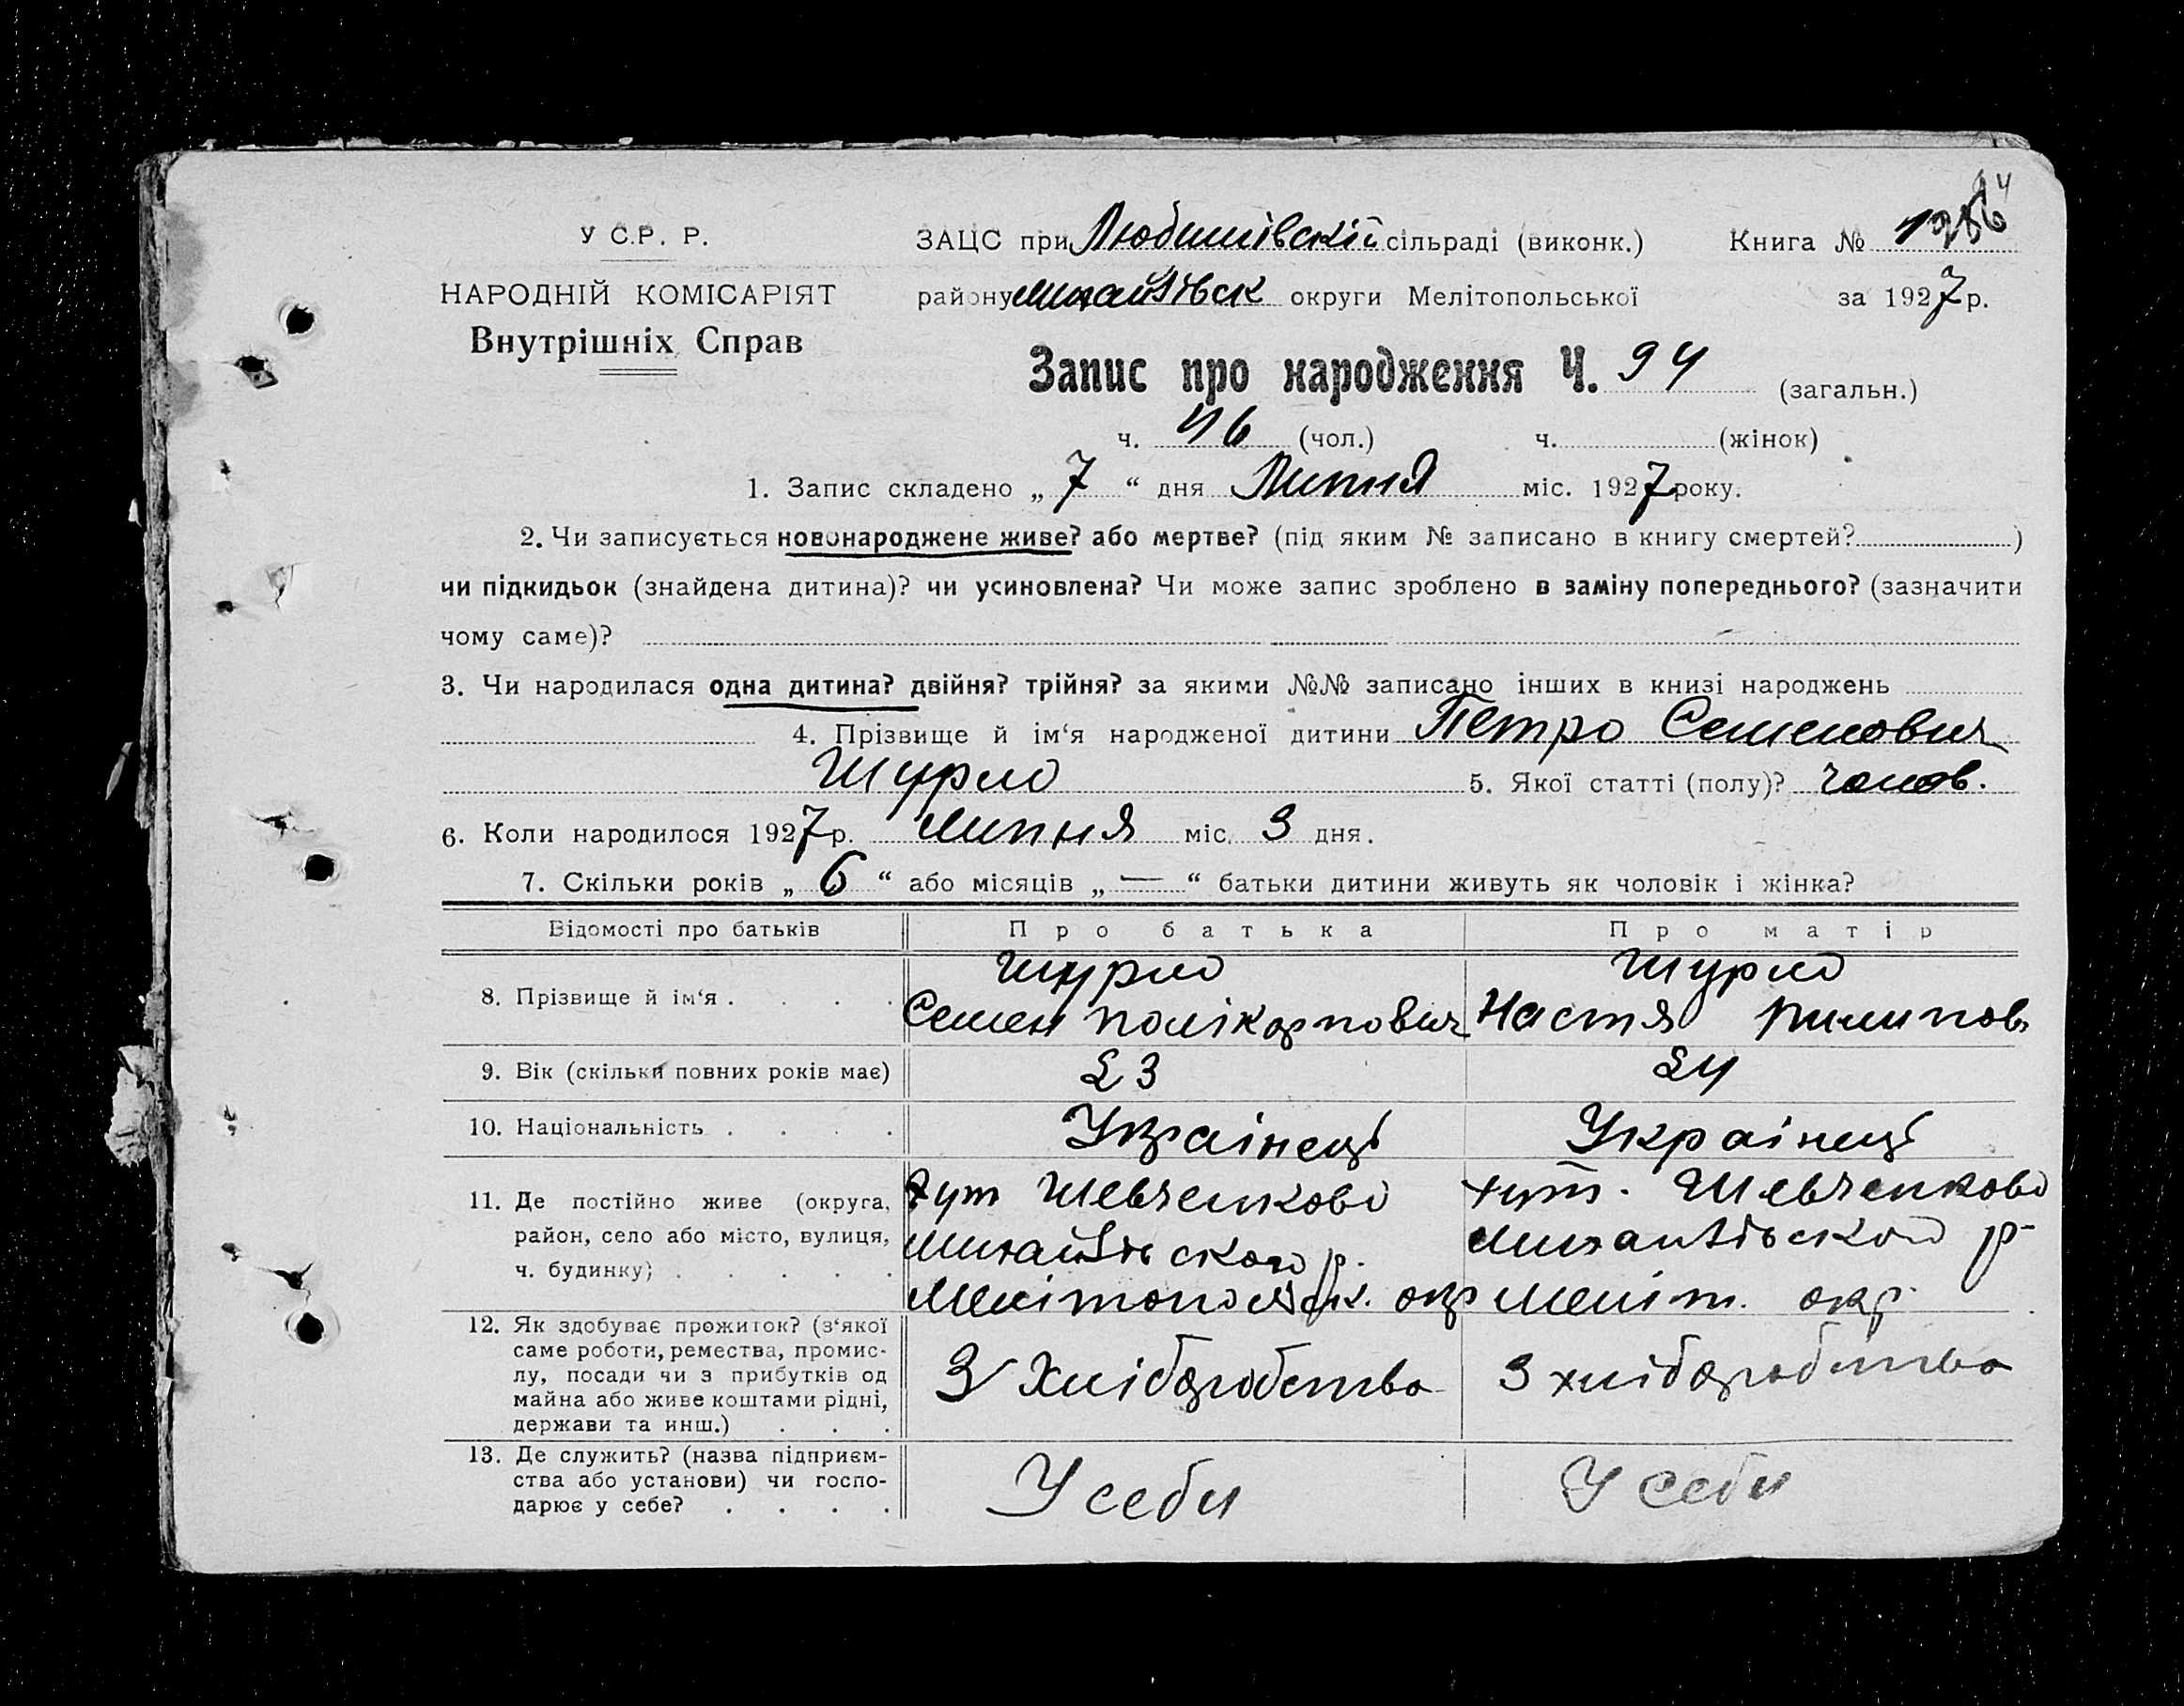 У С.Р. Р.
НАРОДНІЙ КОМІСАРІЯТ
Внутрішніх Справ
ЗАЦС при Любимівскій сільраді (виконк.) Книга №
району Михайлівск округи Мелітопольської за 1927 р.
Запис про народження Ч. 94 (загальн.)
ч. 46 (чол.) ч. (жінок)
1. Запис складено „ 7 “ дня Липня міс. 1927 року.
2. Чи записується новонароджене живе? або мертве? (під яким № записано в книгу смертей? )
чи підкидьок (знайдена дитина)? чи усиновлена? Чи може запис зроблено в заміну попереднього? (зазначити
чому саме)?
3. Чи народилася одна дитина? двійня? трійня? за якими №№ записано інших в книзі народжень
4. Прізвище й ім‘я народженої дитини Петро Семенович
Шурло 5. Якої статті (полу)? чолов.
6. Коли народилося 1927 р. липня міс. 3 дня.
7. Скільки років „ 6 “ або місяців „ — “ батьки дитини живуть як чоловік і жінка?
Відомості про батьків Про батька Про матір
8. Прізвище й ім‘я . . . . Шурло Семен полікарпович Шурло Настя Пилипов
9. Вік (скільки повних років має) 23 24
10. Національність . . . . Украінець Украінець
11. Де постійно живе (округа,
район, село або місто, вулиця,
ч. будинку) . . . . .
хут Шевченково
Михайлівского р.
Мелітопольск. окр
хут. Шевченково
Михайлівского р
Меліт. окр.
12. Як здобуває прожиток? (з‘якої
саме роботи, ремества, промис-
лу, посади чи з прибутків од
майна або живе коштами рідні,
держави та инш.) . . .
З Хліборобства
З хліборобства
13. Де служить? (назва підприєм-
ства або установи) чи госпо-
дарює у себе? . . . .
У себи
У себи